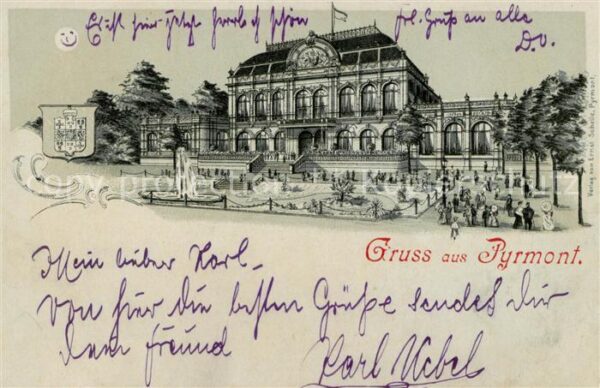 Es ist hier jetzt herrlich schön
frl. Gruß an alle
D.O.
Verlag von Ernst Schulle, Pyrmont.
Gruss aus Pyrmont.
Mein lieber Karl –
von hier die besten Grüße sendet dir
dein Freund
Karl Uebel